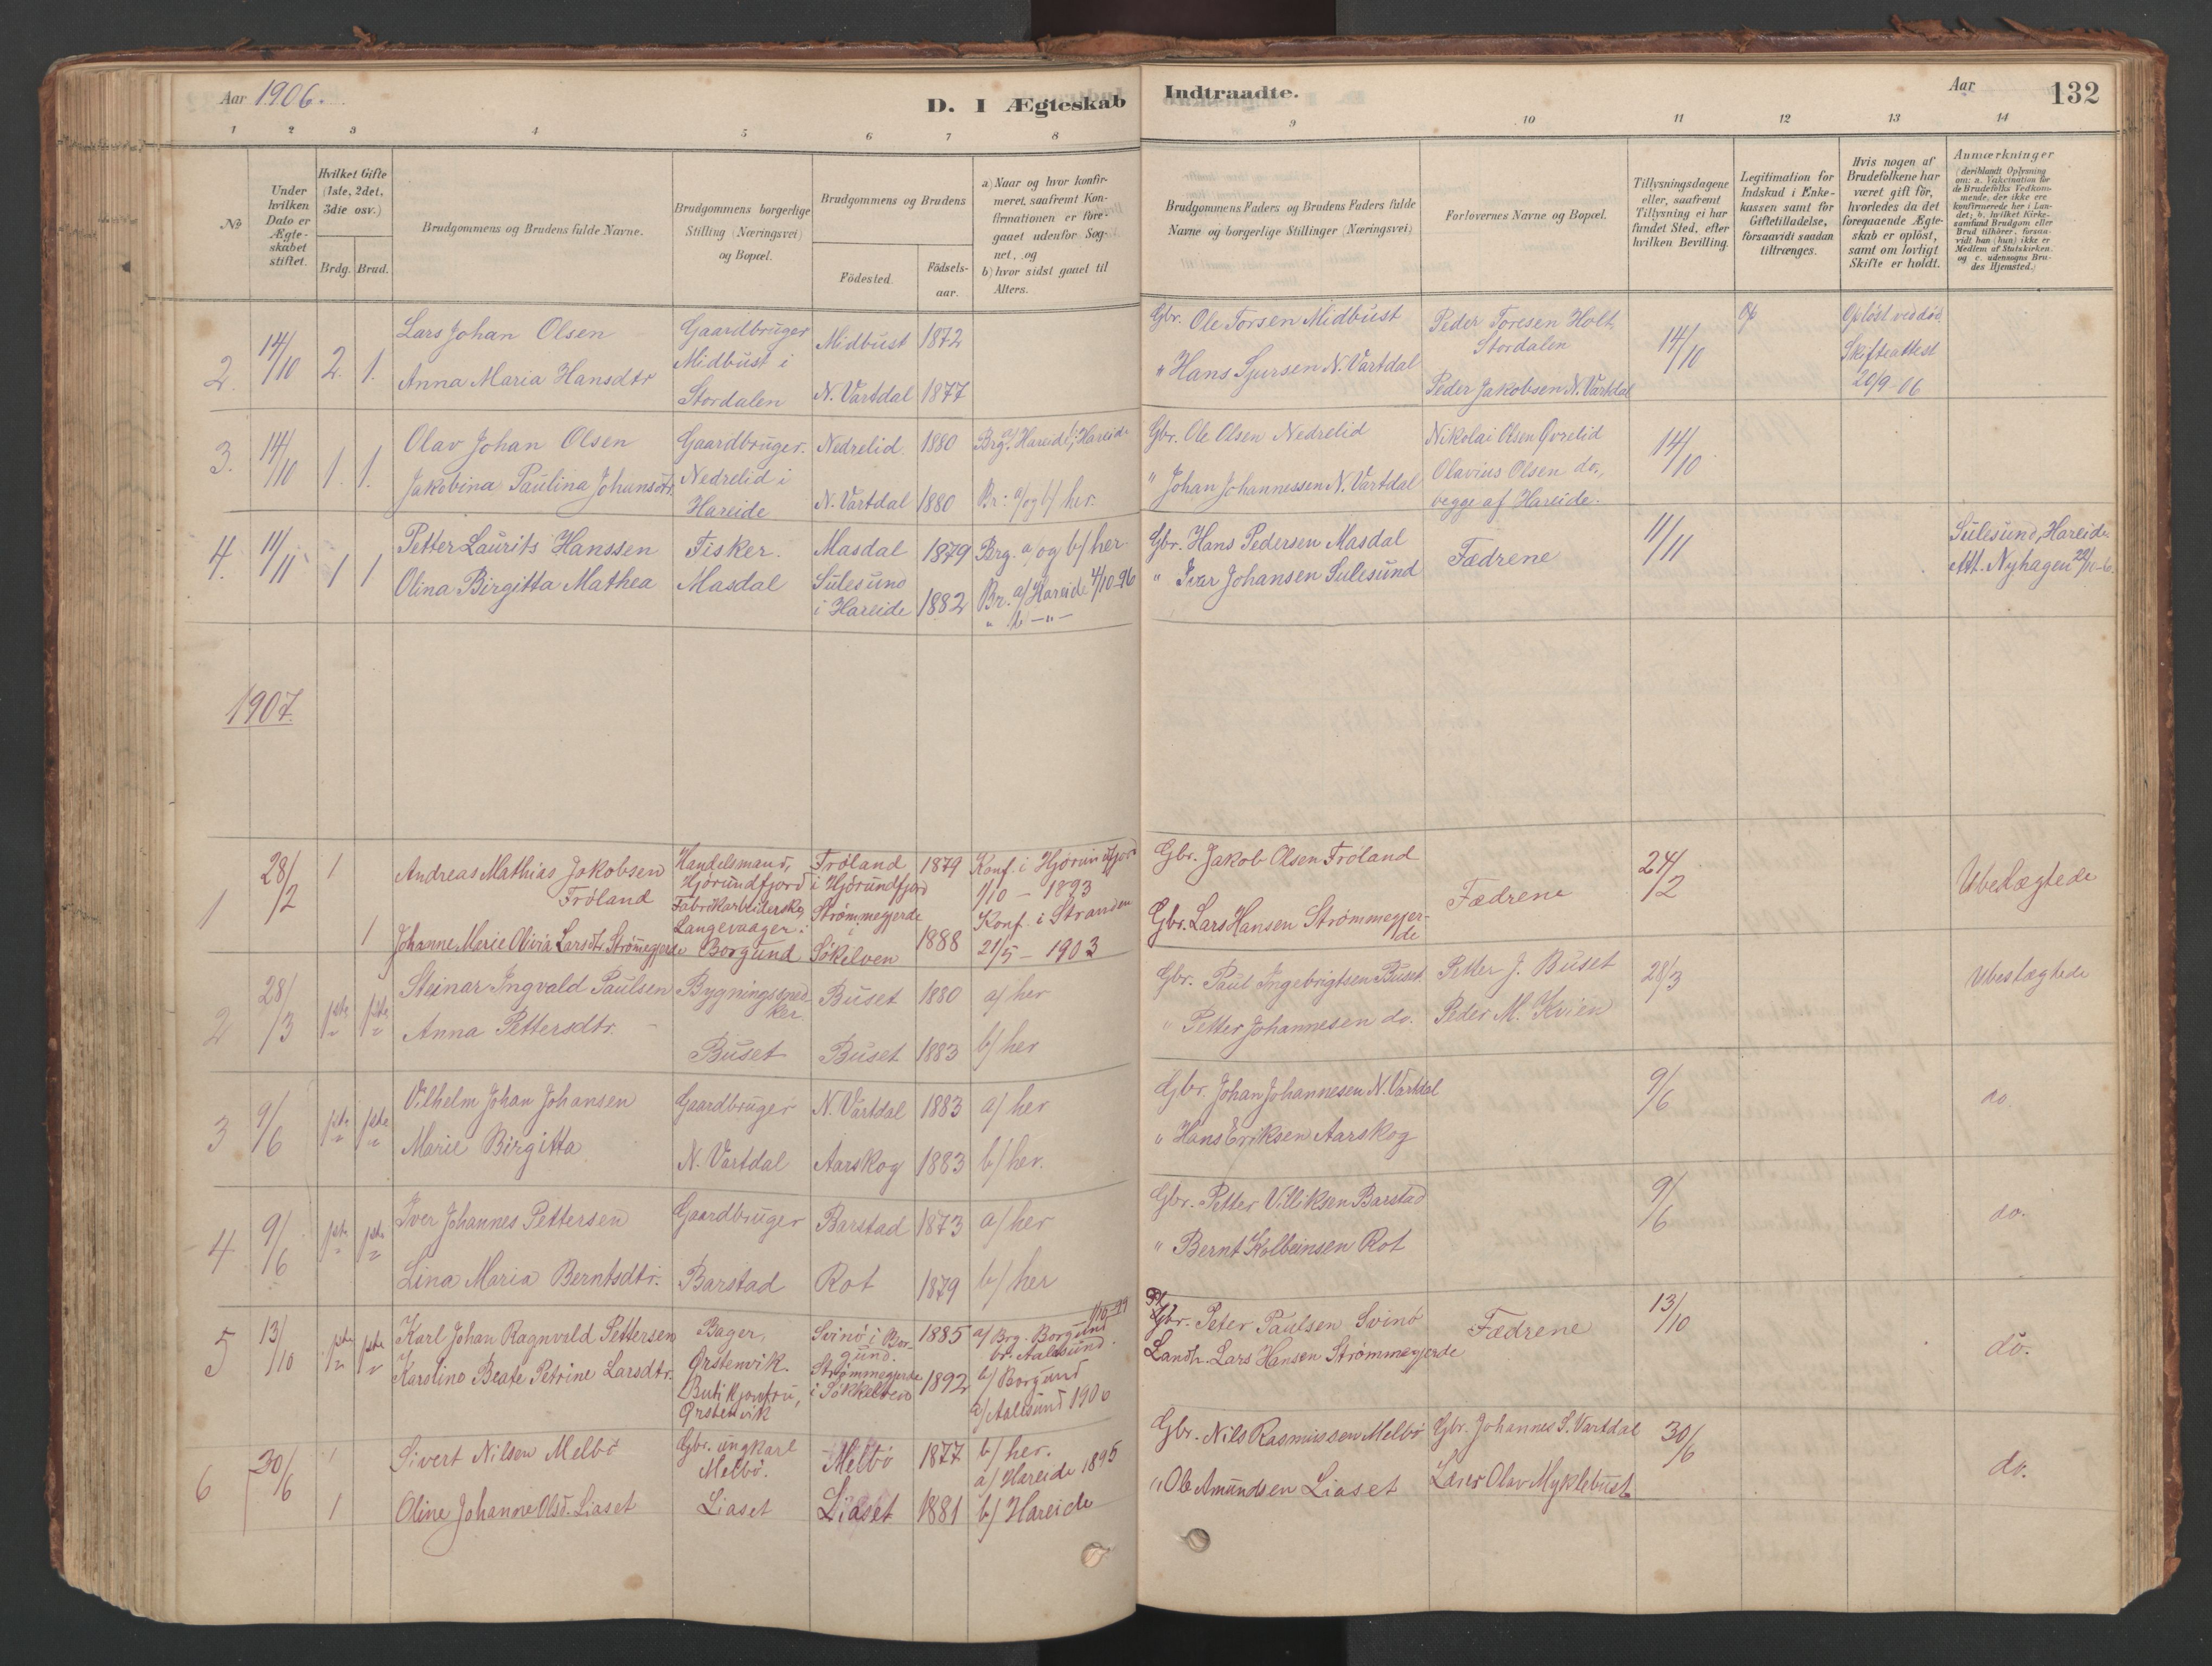 Aar 1906.
D. I Ægteskab
Indtraadte.
Aar
132
1 2 3 4 5 6 7 8 9 10 11 12 13 14
No
Under hvilken Dato er Ægteskabet stiftet.
Hvilket Gifte (1ste, 2det, 3die osv.)
Brdg. Brud.
Brudgommens og Brudens fulde Navne.
Brudgommens borgerlige Stilling (Næringsvei) og Bopæl.
Brudgommens og Brudens
Fødested.
Fødselsaar.
a) Naar og hvor konfirmeret, saafremt Konfirmationen er foregaaet udenfor Sognet, og
b) hvor sidst gaaet til Alters.
Brudgommens Faders og Brudens Faders fulde Navne og borgerlige Stillinger (Næringsvei)
Forlovernes Navne og Bopæl.
Tillysningsdagene eller, saafremt Tillysning ei har fundet Sted, efter hvilken Bevilling.
Legitimation for Indskud i Enkekassen samt for Giftetilladelse, forsaavidt saadan tiltrænges.
Hvis nogen af Brudefolkene har været gift før, hvorledes da det foregaaende Ægteskab er opløst, samt om lovligt Skifte er holdt.
Anmærkninger (deriblandt Oplysning om: a. Vakcination for de Brudefolks Vedkommende, der ikke ere konfirmerede her i Landet; b. hvilket Kirkesamfund Brudgom eller Brud tilhører, forsaavidt han (hun) ikke er Medlem af Statskirken. og c. udensogns Brudes Hjemsted.)
2. 14/10 2. 1.
Lars Johan Olsen
Anna Maria Hansdtr
Gaardbruger
Midbust i
Stordalen
Midbust 1872
N. Vartdal 1877
Gbr. Ole Torsen Midbust
" Hans Sjursen N. Vartdal
Peder Toresen Holt,
Stordalen
Peder Jakobsen N. Vartdal
14/10
Opløst ved død.
Skifteattest
20/9-06
3. 14/10 1. 1.
Olav Johan Olsen
Jakobina Paulina Johansdtr.
Gaardbruger.
Nedrelid i
Hareide
Nedrelid. 1880
N. Vartdal 1880
Brg. a/ Hareide b/ Hareide
Br: a/ og b/ her.
Gbr. Ole Olsen Nedrelid
" Johan Johannessen N. Vartdal
Nikolai Olsen Øvrelid
Olavius Olsen do.,
begge af Hareide.
14/10
4. 11/11 1 1
Petter Laurits Hanssen
Olina Birgitta Mathea
Fisker.
Masdal
Masdal 1879
Sulesund
i Hareide 1882
Brg. a/ og b/ her.
Br. a/ Hareide 4/10-96
" b — " —
Gbr. Hans Pedersen Masdal
" Iver Johansen Sulesund
Fædrene
11/11
Sulesund, Hareide
Att. Nyhagen 22/10-6.
1907.
1 28/2 1
1
Andreas Mathias Jakobsen
Frøland
Johanne Marie Olivia Larsdtr. Strømmegjerde
Handelsmand,
Hjørundfjord
Fabrikarbeiderske,
Langevaagen i
Borgund
Frøland 1879
i Hjørundfjord
Strømmegjerde
i
Søkelven 1888
Konf. i Hjørundfjord
1/10 – 1893
Konf. i Stranden
21/5 – 1903
Gbr. Jakob Olsen Frøland
Gbr. Lars Hansen Strømmegjer-
de
Fædrene
24/2
Ubeslægtede
2 28/3 1ste 1ste
Steinar Ingvald Paulsen
Anna Pettersdtr.
Bygningssned
ker.
Buset
Buset 1880
Buset 1883
a/ her
b/ her
Gbr. Paul Ingebrigtsen Buset
" Petter Johannesen do.
Petter J. Buset
Peder M. Kvien
28/3
Ubeslægtede
3 9/6 1ste 1ste
Vilhelm Johan Johansen
Marie Birgitta
Gaardbruger
N. Vartdal
N. Vartdal 1883
Aarskog 1883
a/ her
b/ her.
Gbr. Johan Johannesen N. Vartdal
" Hans Eriksen Aarskog
9/6
do.
4 9/6 1ste 1ste
Iver Johannes Pettersen
Lina Maria Berntsdtr.
Gaardbruger
Barstad
Barstad 1873
Rot 1879
a/ her
b/ her
Gbr. Petter Villiksen Barstad
" Bernt Kolbeinsen Rot
9/6
do.
5 13/10 1ste 1ste
Karl Johan Ragnvald Pettersen
Karoline Beate Petrine Larsdtr.
Bager,
Ørstenvik.
Butikjomfru,
Ørstenvik
Svinø i Bor- 1885
gund.
Strømmegjerde
i Søkkelven 1892
a/ Brg. Borgund
br. Aalesund.
b/ Borgund
a/ Aalesund 1906
Gbr. Peter Paulsen Svinø
Landh. Lars Hansen Strømmegjerde
Fædrene
13/10
do.
6 30/6 1
1
Sivert Nilsen Melbø
Oline Johanne Olsd. Liaset
Gbr. ungkarl
Melbø.
Liaset
Melbø 1877
Liaset 1881
b/ her.
a/ Hareide 1895
b/ Hareide
Gbr. Nils Rasmussen Melbø
" Ole Amundsen Liaset
Gbr. Johannes S. Vartdal
Lærer Olav Myklebust
30/6
do.